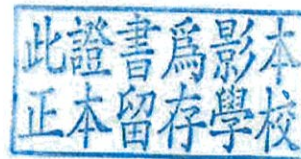 此證書爲影本
正本留存學校